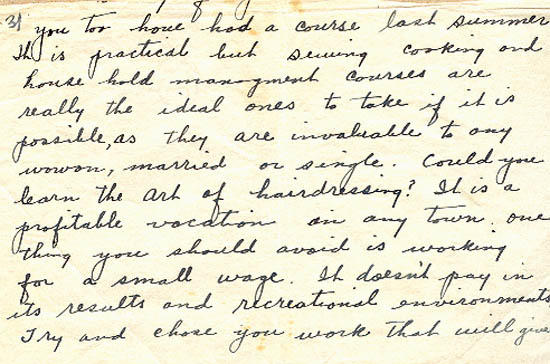 3) you too have had a course last summer
It is practical but sewing cooking and
house hold managment courses are
really the ideal ones to take if it is
possible, as they are invaluable to any
woman, married or single. Could you
learn the art of hairdressing? It is a
profitable vocation in any town. one
thing you should avoid is working
for a small wage. It doesn't pay in
its results and recreational environments
Try and chose you work that will give